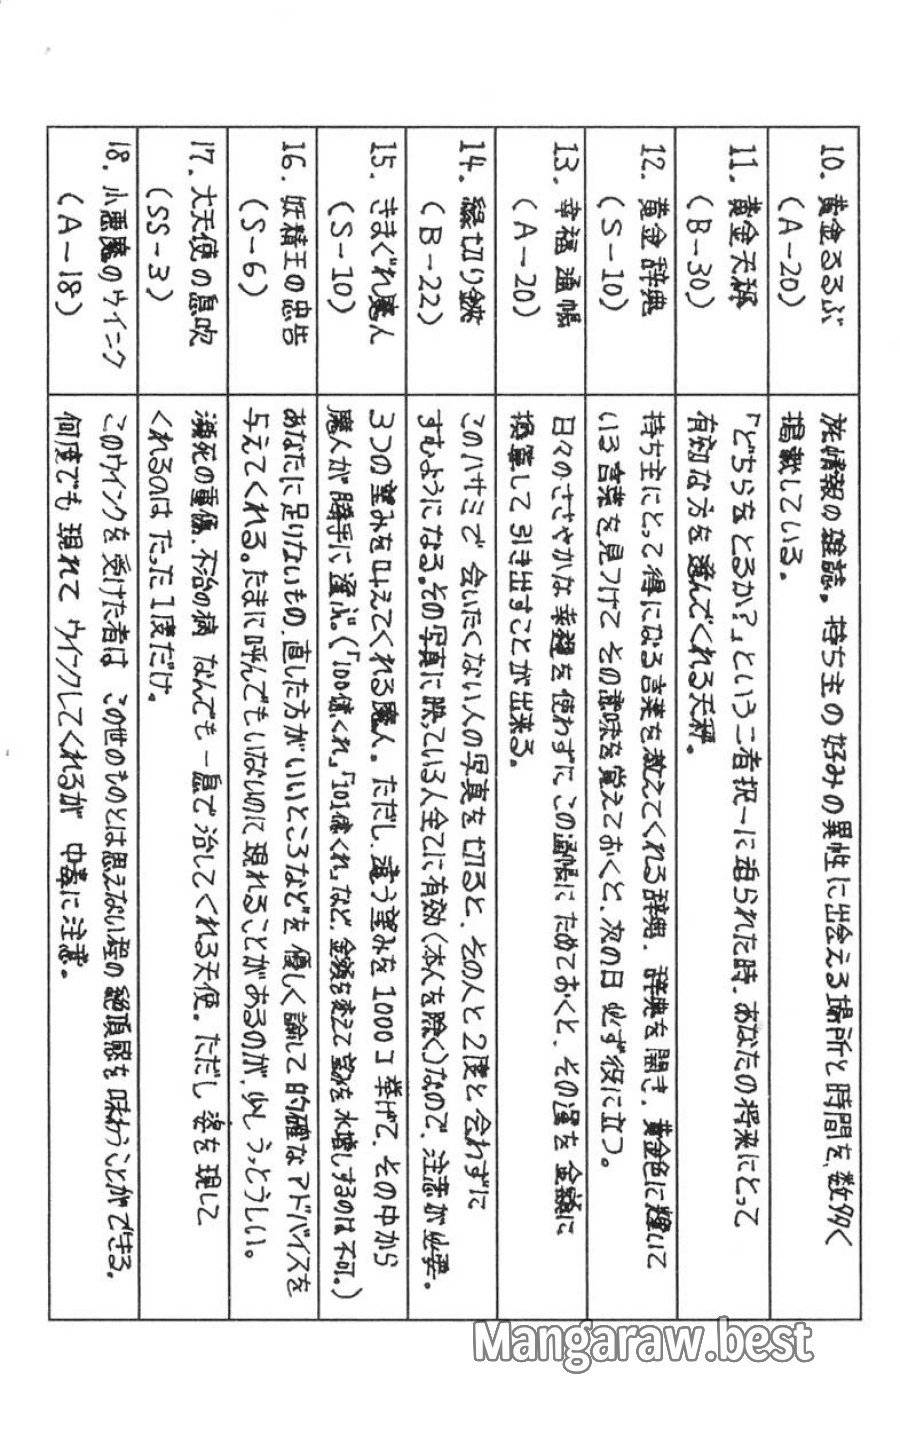 10. 黄金るるぶ
(A-20)
旅情報の雑誌。持ち主の好みの異性に出会える場所と時間を、数多く
掲載している。
11. 黄金天秤
(B-30)
「どちらをとるか?」という二者択一に迫られた時、あなたの将来にとって
有効な方を選んでくれる天秤。
12. 黄金辞典
(S-10)
持ち主にとって得になる言葉を教えてくれる辞典。辞典を開き、黄金色に輝いて
いる言葉を見つけて その意味を覚えておくと、次の日 必ず役に立つ。
13. 幸福通帳
(A-20)
日々のささやかな幸運を使わずに この通帳に ためておくと、その運を 金額に
換算して 引き出すことが出来る。
14. 縁切り鋏
(B-22)
このハサミで 会いたくない人の写真を切ると、その人と2度と会わずに
すむようになる。その写真に映っている人全てに有効(本人を除く)なので、注意が必要。
15. きまぐれ魔人
(S-10)
3つの望みを叶えてくれる魔人。ただし、違う望みを1000コ挙げて、その中から
魔人が勝手に選ぶ。(「100億くれ」「101億くれ」など、金額を変えて望みを水増しするのは不可。)
16. 妖精王の忠告
(S-6)
あなたに足りないもの、直した方がいいところなどを 優しく諭して 的確なアドバイスを
与えてくれる。たまに呼んでもいないのに現れることがあるのが、少しうっとうしい。
17. 大天使の息吹
(SS-3)
瀕死の重傷、不治の病 なんでも一息で治してくれる天使。ただし 姿を現して
くれるのは たった1度だけ。
18. 小悪魔のウインク
(A-18)
このウインクを受けた者は この世のものとは思えない程の絶頂感を味わうことができる。
何度でも現れて ウインクしてくれるが 中毒に注意。
Mangaraw.best